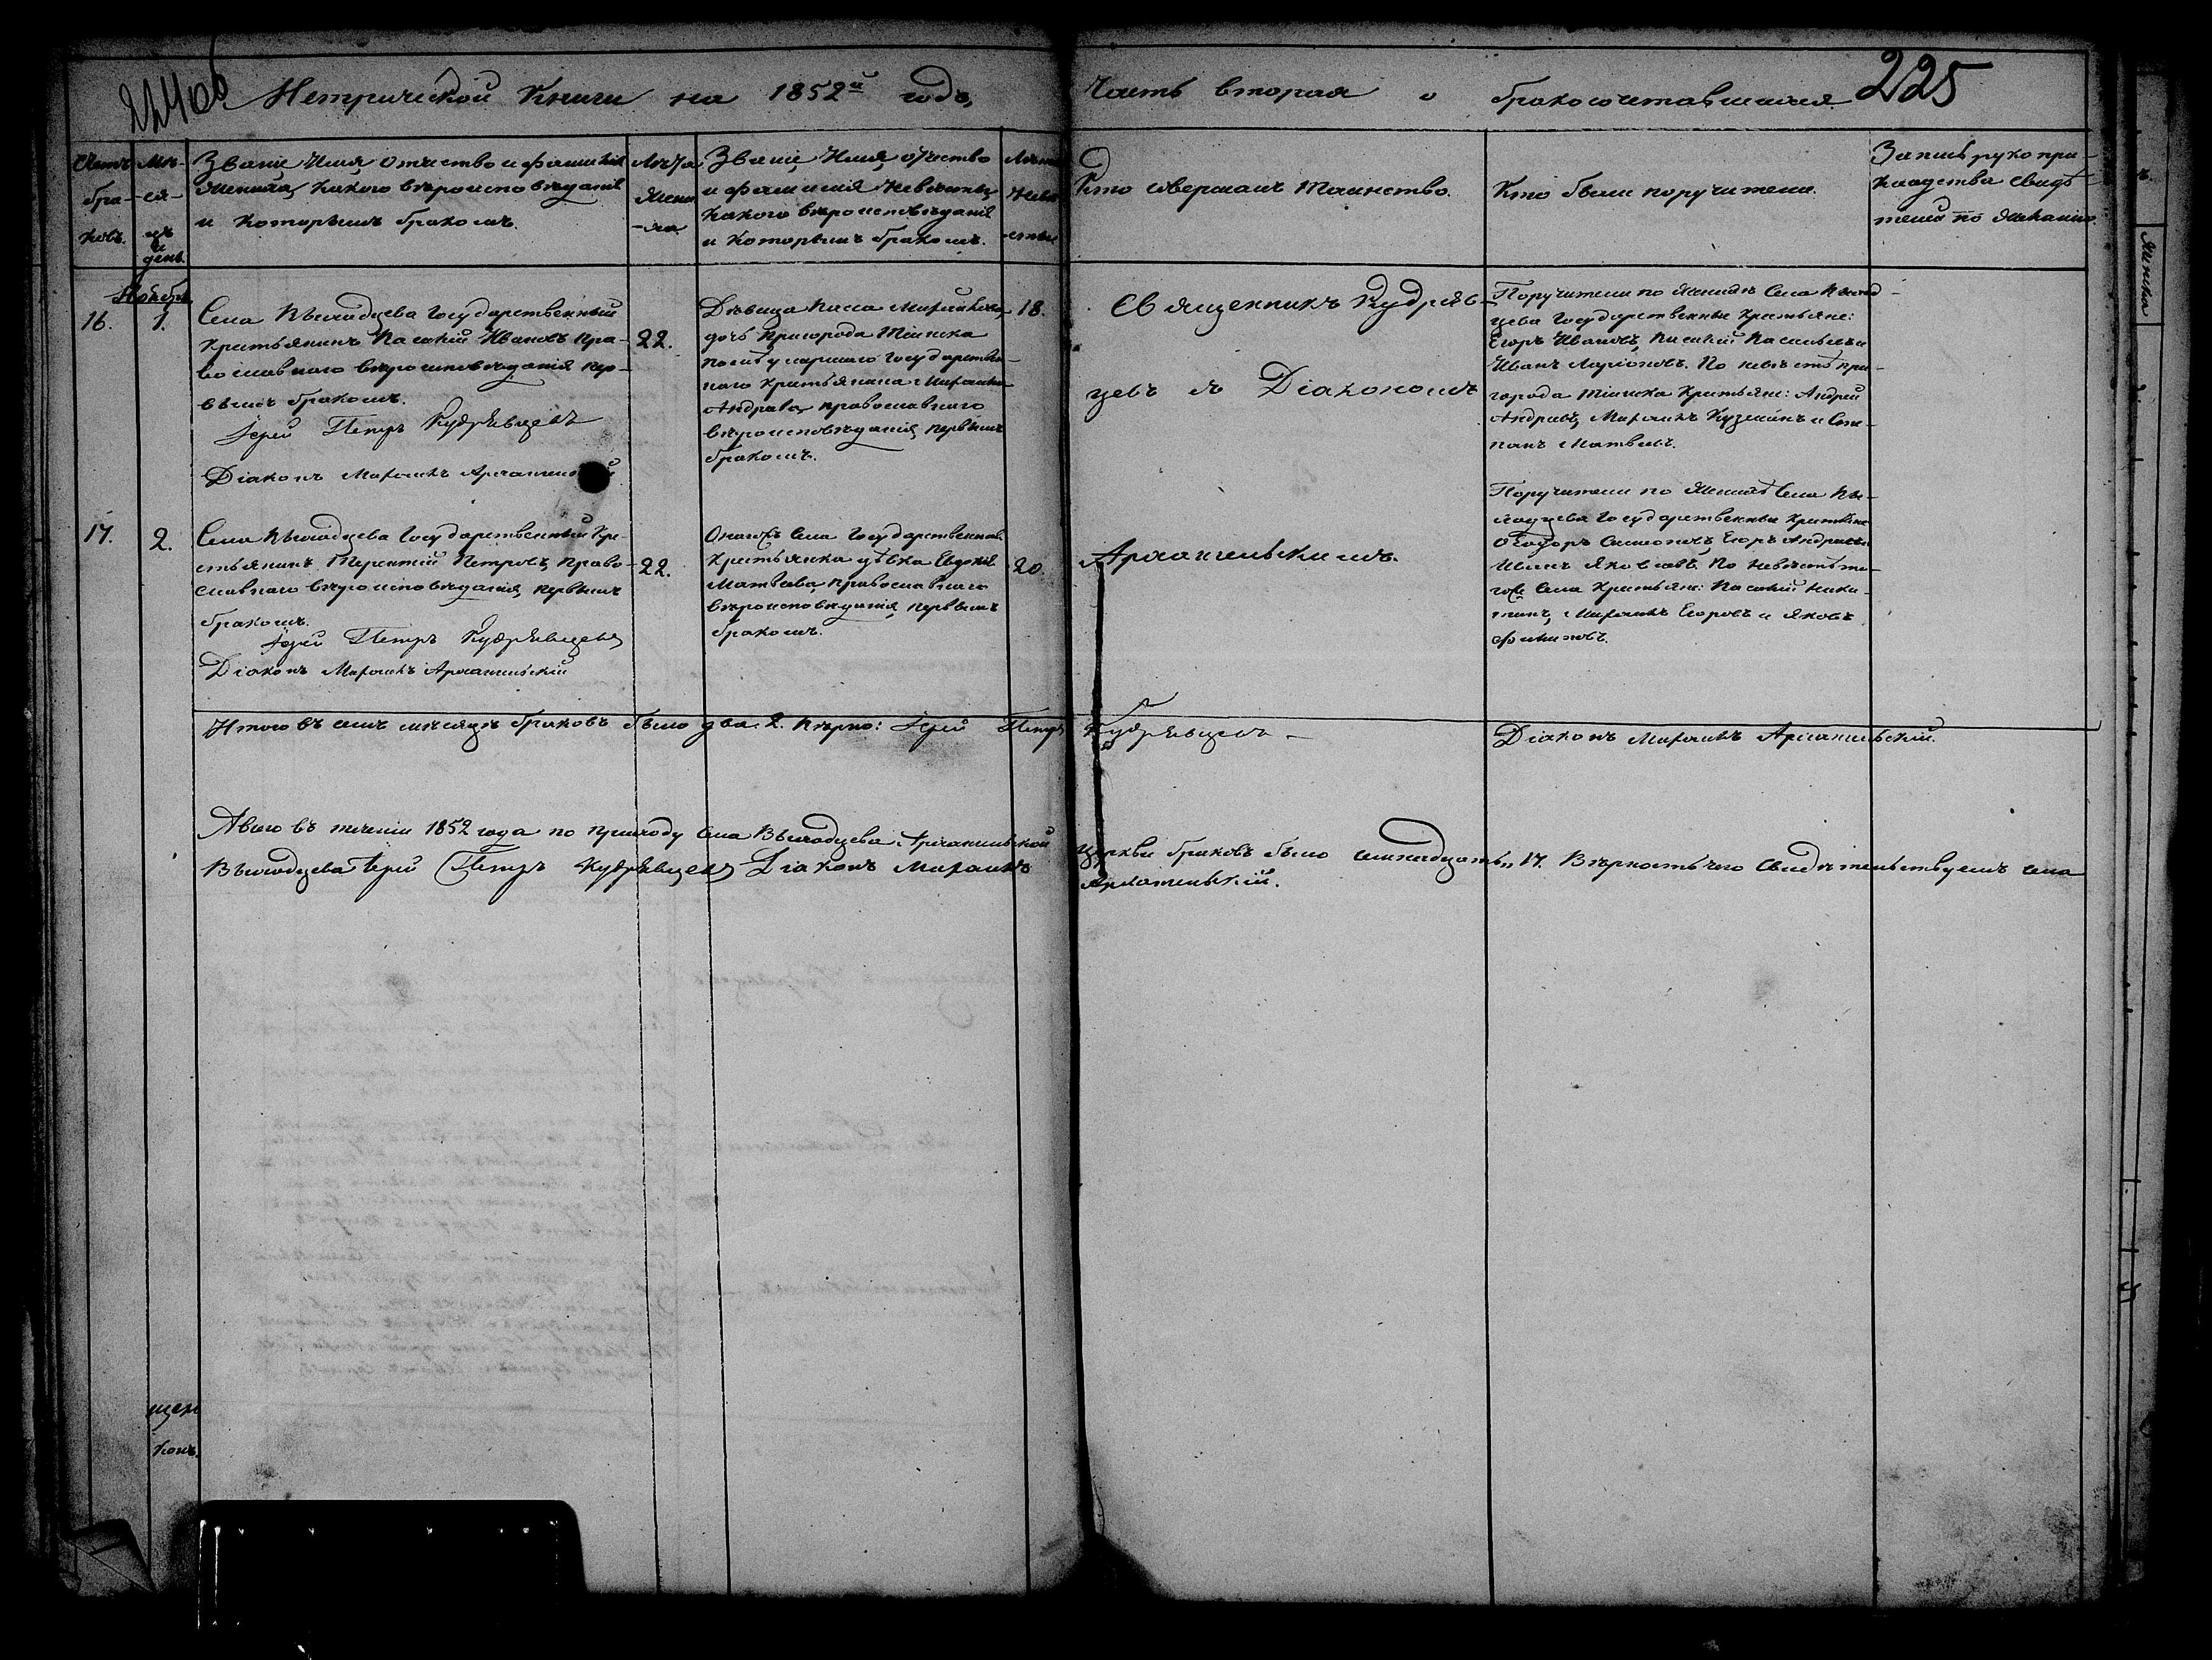 224об
Метрической Книги на 1852й годъ,
Часть вторая о бракосочетавшихся
225
Счетъ браковъ.
Мѣсяцъ и день.
Званіе, Имя, отчество и фамилія
жениха, какого вѣроисповѣданія
и которымъ бракомъ.
Лѣта жениха.
Званіе, Имя, отчество
и фамилія невѣсты,
какого вѣроисповѣданія
и которымъ бракомъ.
Лѣта невѣсты
Кто совершалъ таинство.
Кто были поручители.
Запись рукопри-
кладства свидѣ-
телей по желанію.
Ноября
16.
1.
Села Выходцева Государственный
Крестьянинъ Василій Ивановъ пра-
вославнаго вѣроисповѣданія пер-
вымъ бракомъ.
Іерей Петръ Кудрявцевъ
Діаконъ Михаилъ Архангельскій
22.
Дѣвица
дочь пригорода Тіинска
Государствен-
наго Крестьянина Михаила
Андреева, православнаго
вѣроисповѣданія, первымъ
бракомъ.
18.
Священникъ Кудряв-
цевъ съ Діакономъ
Поручители по женихѣ Села Выход-
цева Государственные Крестьяне:
Егоръ Ивановъ, Василій Васильевъ и
Иванъ Ларіоновъ. По невѣстѣ при-
города Тіинска Крестьяне: Андрей
Андреевъ, Михаилъ Кузминъ и Сте-
панъ Матвеевъ.
17.
2.
Села Выходцева Государственный Кре-
стьянинъ Терентій Петровъ, право-
славнаго вѣроисповѣданія, первымъ
бракомъ.
Іерей Петръ Кудрявцевъ
Діаконъ Михаилъ Архангельскій
22.
Онагожъ Села Государственная
Крестьянка дѣвка Евдокія
Матвѣева, православнаго
вѣроисповѣданія, первымъ
бракомъ.
20.
Архангельскимъ.
Поручители по женихѣ Села Вы-
ходцева Государственные Крестьяне
Ѳеодоръ Симеоновъ, Егоръ Андреевъ
Иванъ Яковлевъ. По невѣстѣ то-
гожъ Села Крестьяне: Василій Ники-
тинъ, Михаилъ Егоровъ и Яковъ
Филиповъ.
Итого въ семъ мѣсяцѣ браковъ было два. 2. Вѣрно: Іерей Петръ Кудрявцевъ - Діаконъ Михаилъ Архангельскій.
А всего въ теченіи 1852 года по приходу Села Выходцева Архангельской Церкви браковъ было семнадцать„ 17. Вѣрность чего свидѣтельствуемъ села
Выходцева Іерей Петръ Кудрявцевъ Діаконъ Михаилъ Архангельскій.
щен
конъ.